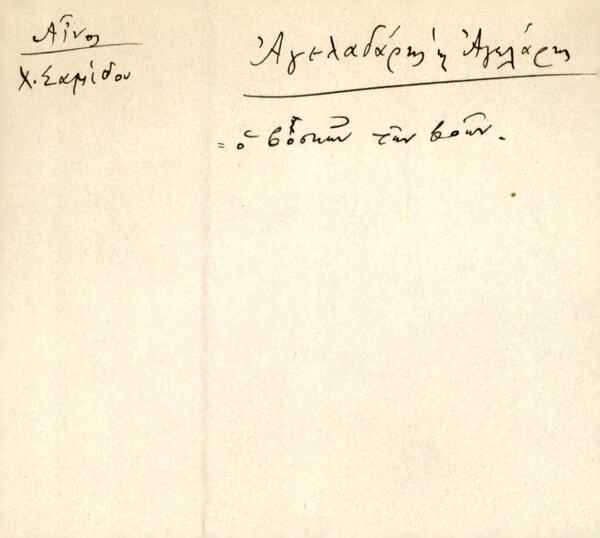 Αἶνος
Χ. Σαμίδου
Ἀγελαδάρης ἢ Ἀγελάρης
= ὁ βόσκων τῶν βοῶν.